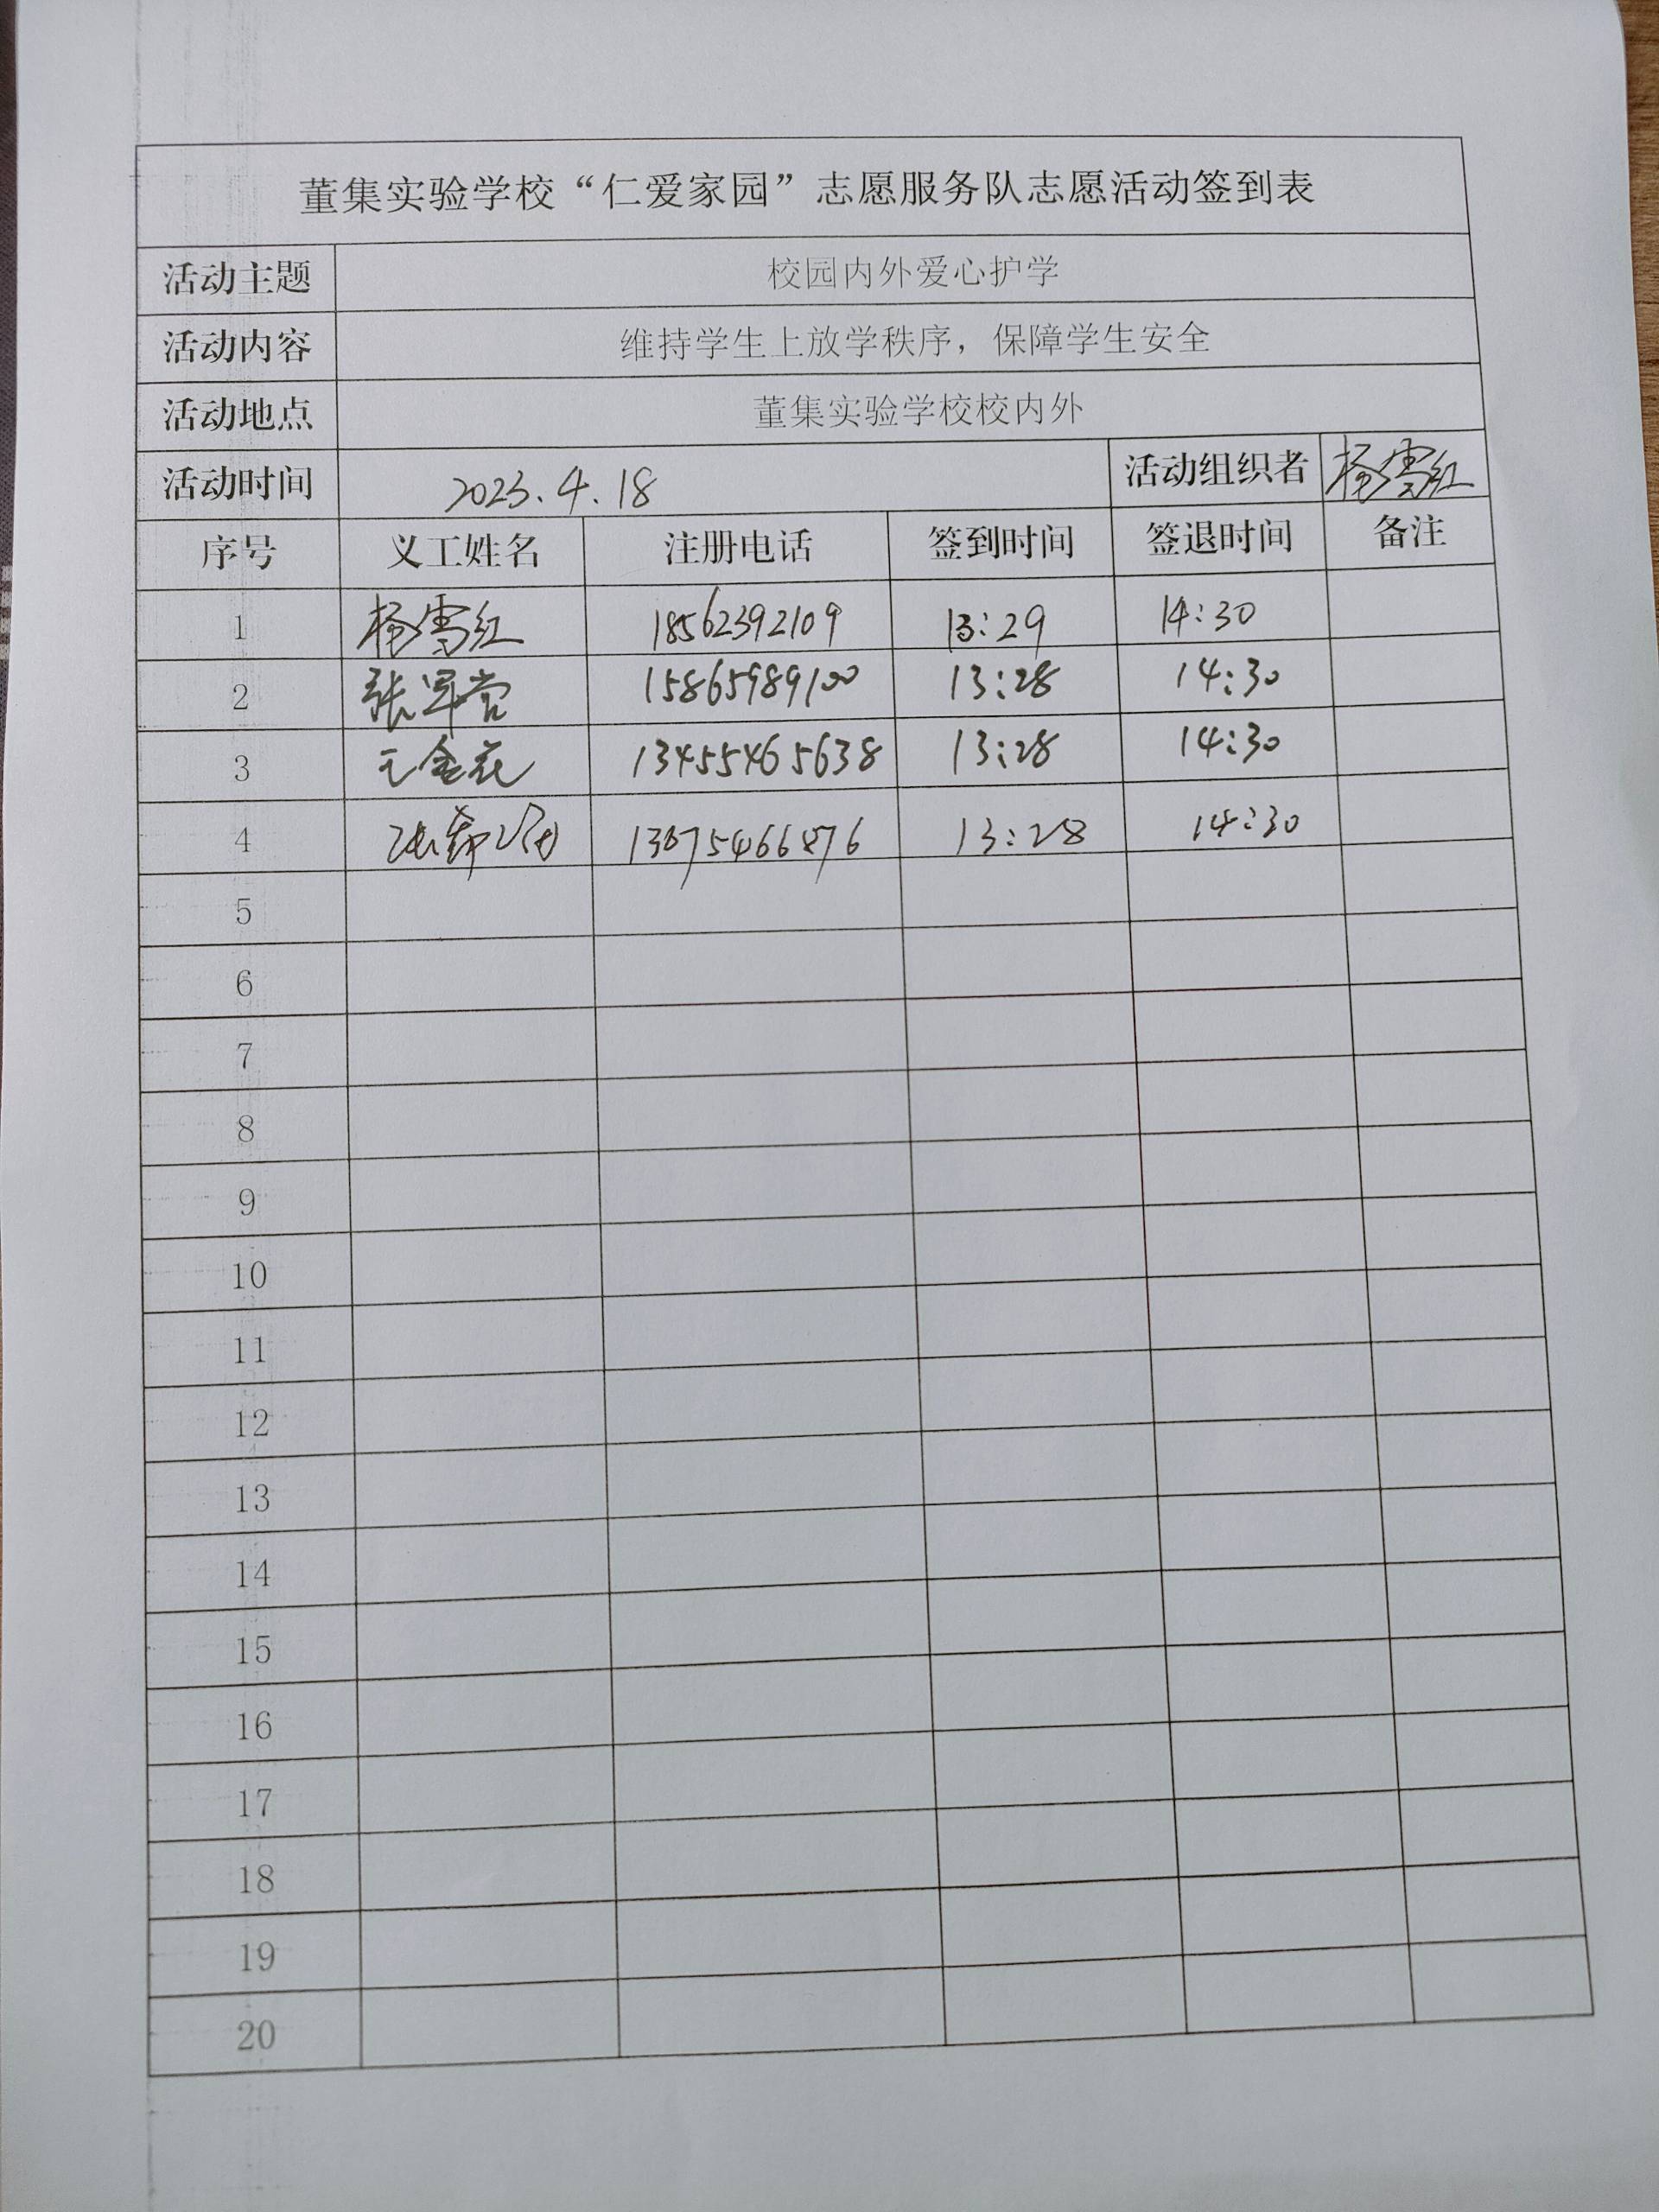 董集实验学校“仁爱家园”志愿服务队志愿活动签到表
活动主题 校园内外爱心护学
活动内容 维持学生上放学秩序，保障学生安全
活动地点 董集实验学校校内外
活动时间 2023.4.18 活动组织者 杨雪红
序号 义工姓名 注册电话 签到时间 签退时间 备注
1 杨雪红 18562392109 13:29 14:30
2 15865989100 13:28 14:30
3 13455465638 13:28 14:30
4 13:28 14:30
5
6
7
8
9
10
11
12
13
14
15
16
17
18
19
20